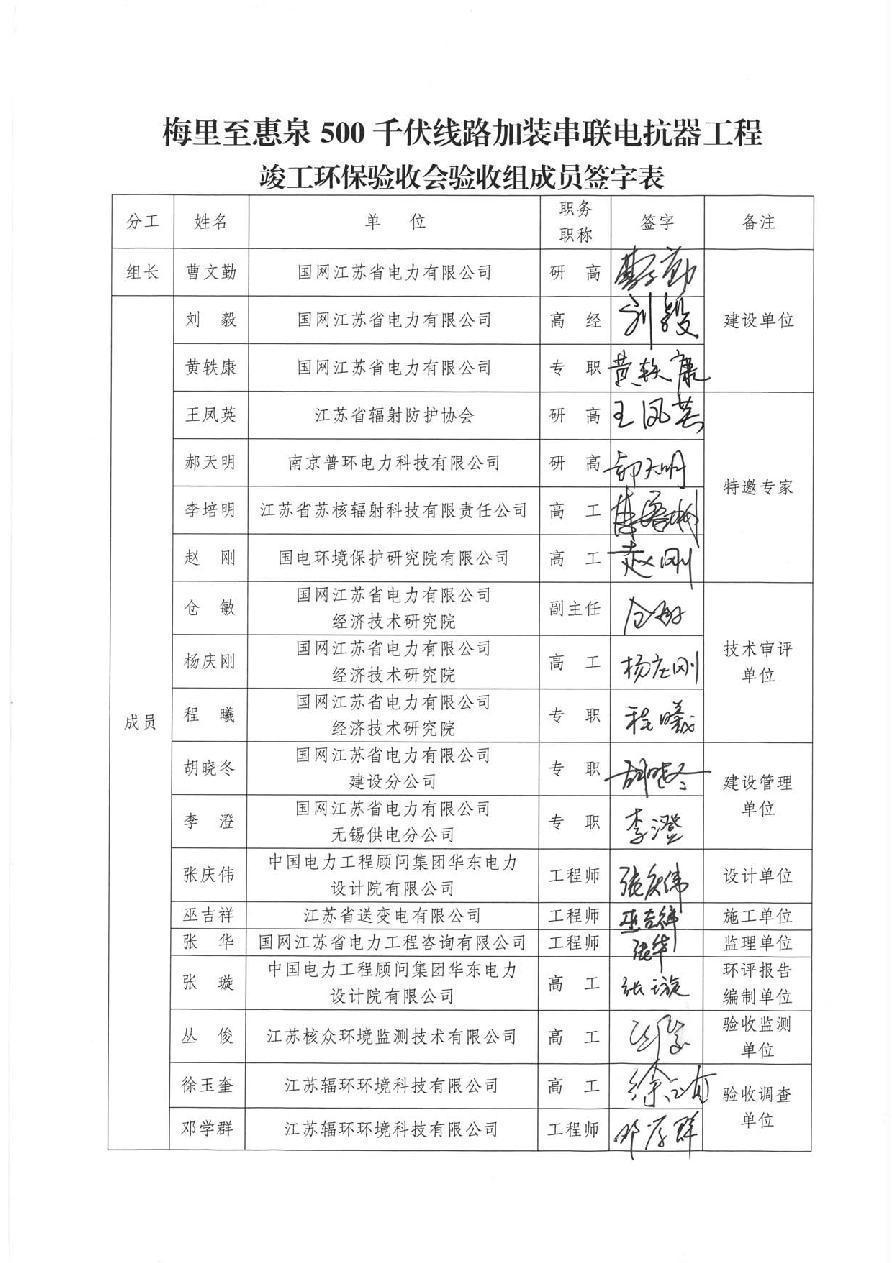 梅里至惠泉 500 千伏线路加装串联电抗器工程
竣工环保验收会验收组成员签字表
分工 姓名 单 位 职务职称 签字 备注
组长 曹文勤 国网江苏省电力有限公司 研 高 曹文勤 建设单位
成员 刘 毅 国网江苏省电力有限公司 高 经 刘毅
黄轶康 国网江苏省电力有限公司 专 职 黄轶康
王凤英 江苏省辐射防护协会 研 高 王凤英 特邀专家
郝天明 南京普环电力科技有限公司 研 高 郝天明
李培明 江苏省苏核辐射科技有限责任公司 高 工
赵 刚 国电环境保护研究院有限公司 高 工 赵刚
仓 敏 国网江苏省电力有限公司
经济技术研究院 副主任 仓敏 技术审评
单位
杨庆刚 国网江苏省电力有限公司
经济技术研究院 高 工 杨庆刚
程 曦 国网江苏省电力有限公司
经济技术研究院 专 职 程曦
胡晓冬 国网江苏省电力有限公司
建设分公司 专 职 胡晓冬 建设管理
单位
李 澄 国网江苏省电力有限公司
无锡供电分公司 专 职 李澄
张庆伟 中国电力工程顾问集团华东电力
设计院有限公司 工程师 张庆伟 设计单位
巫吉祥 江苏省送变电有限公司 工程师 巫吉祥 施工单位
张 华 国网江苏省电力工程咨询有限公司 工程师 张华 监理单位
张 璇 中国电力工程顾问集团华东电力
设计院有限公司 高 工 张璇 环评报告
编制单位
丛 俊 江苏核众环境监测技术有限公司 高 工 验收监测
单位
徐玉奎 江苏辐环环境科技有限公司 高 工 徐玉奎 验收调查
单位
邓学群 江苏辐环环境科技有限公司 工程师 邓学群